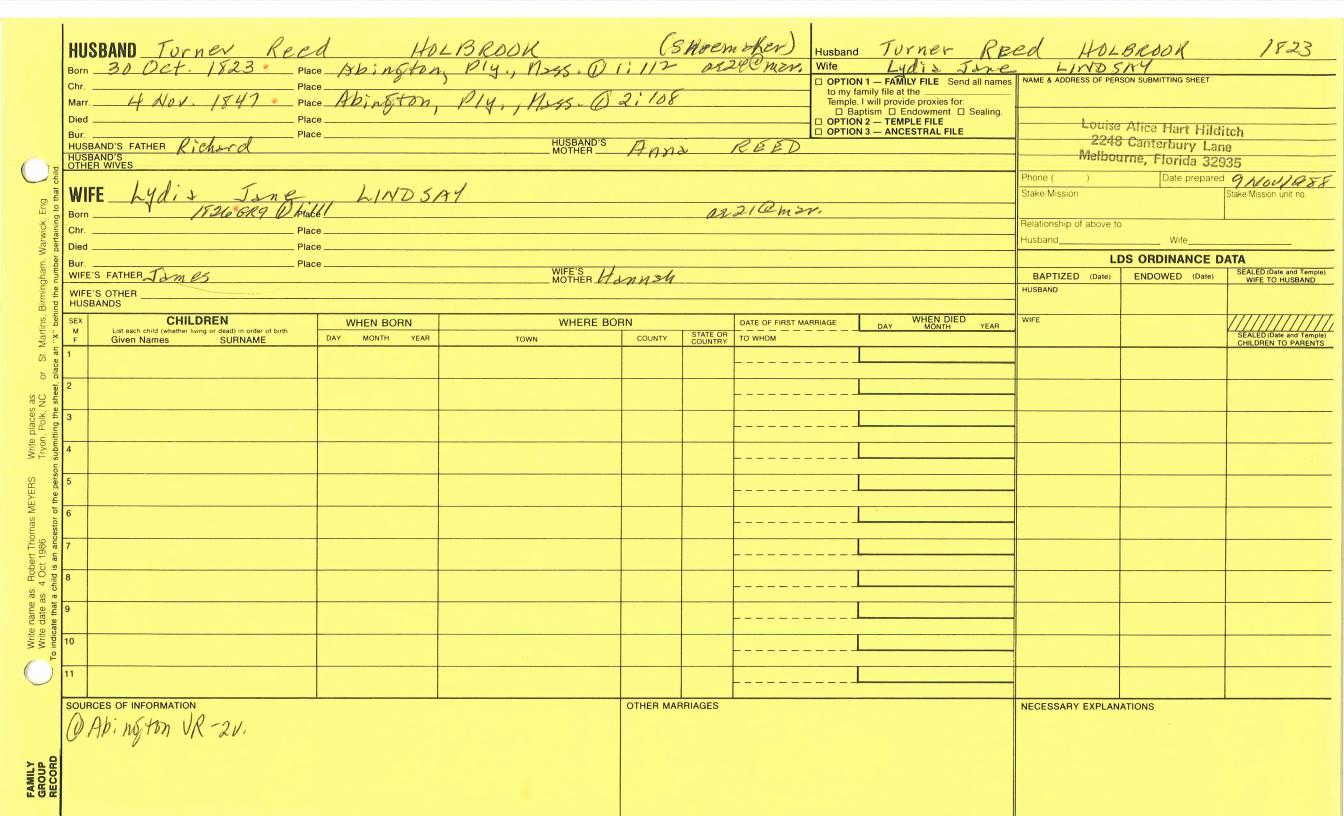 HUSBAND Turner Reed HOLBROOK (Shoemaker)
Born 30 Oct. 1823 Place Abington, Ply., Mass. ① 1:112 as 24 @ mar.
Chr. Place
Marr. 4 Nov. 1847 Place Abington, Ply., Mass. ① 2:108
Died Place
Bur. Place
HUSBAND'S FATHER Richard HUSBAND'S MOTHER Anna REED
HUSBAND'S OTHER WIVES
Husband Turner Reed HOLBROOK 1823
Wife Lydia Jane LINDSAY
☐ OPTION 1 — FAMILY FILE Send all names
to my family file at the
Temple. I will provide proxies for:
☐ Baptism ☐ Endowment ☐ Sealing.
☐ OPTION 2 — TEMPLE FILE
☐ OPTION 3 — ANCESTRAL FILE
NAME & ADDRESS OF PERSON SUBMITTING SHEET
Louise Alice Hart Hilditch
2248 Canterbury Lane
Melbourne, Florida 32935
Phone ( ) Date prepared 9 Nov 1988
Stake Mission Stake Mission unit no.
Relationship of above to
Husband Wife
WIFE Lydia Jane LINDSAY
Born 1826 GR9 Place as 21 @ mar.
Chr. Place
Died Place
Bur. Place
WIFE'S FATHER James WIFE'S MOTHER Hannah
WIFE'S OTHER HUSBANDS
LDS ORDINANCE DATA
BAPTIZED (Date) ENDOWED (Date) SEALED (Date and Temple) WIFE TO HUSBAND
HUSBAND
WIFE
SEALED (Date and Temple) CHILDREN TO PARENTS
SEX M F
CHILDREN
List each child (whether living or dead) in order of birth
Given Names SURNAME
WHEN BORN
DAY MONTH YEAR
WHERE BORN
TOWN COUNTY STATE OR COUNTRY
DATE OF FIRST MARRIAGE
TO WHOM
WHEN DIED
DAY MONTH YEAR
1
2
3
4
5
6
7
8
9
10
11
SOURCES OF INFORMATION
① Abington VR-2v.
OTHER MARRIAGES
NECESSARY EXPLANATIONS
Write name as: Robert Thomas MEYERS Write places as: Tryon, Polk, NC or St. Martins, Birmingham, Warwick, Eng
Write date as: 4 Oct 1986
To indicate that a child is an ancestor of the person submitting the sheet, place an "x" behind the number pertaining to that child.
FAMILY
GROUP
RECORD